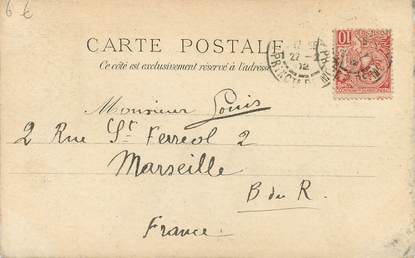 6 €
CARTE POSTALE
Ce côté est exclusivement réservé à l'adresse
Monsieur Louis
2 Rue St Ferreol 2
Marseille
B du R.
France.